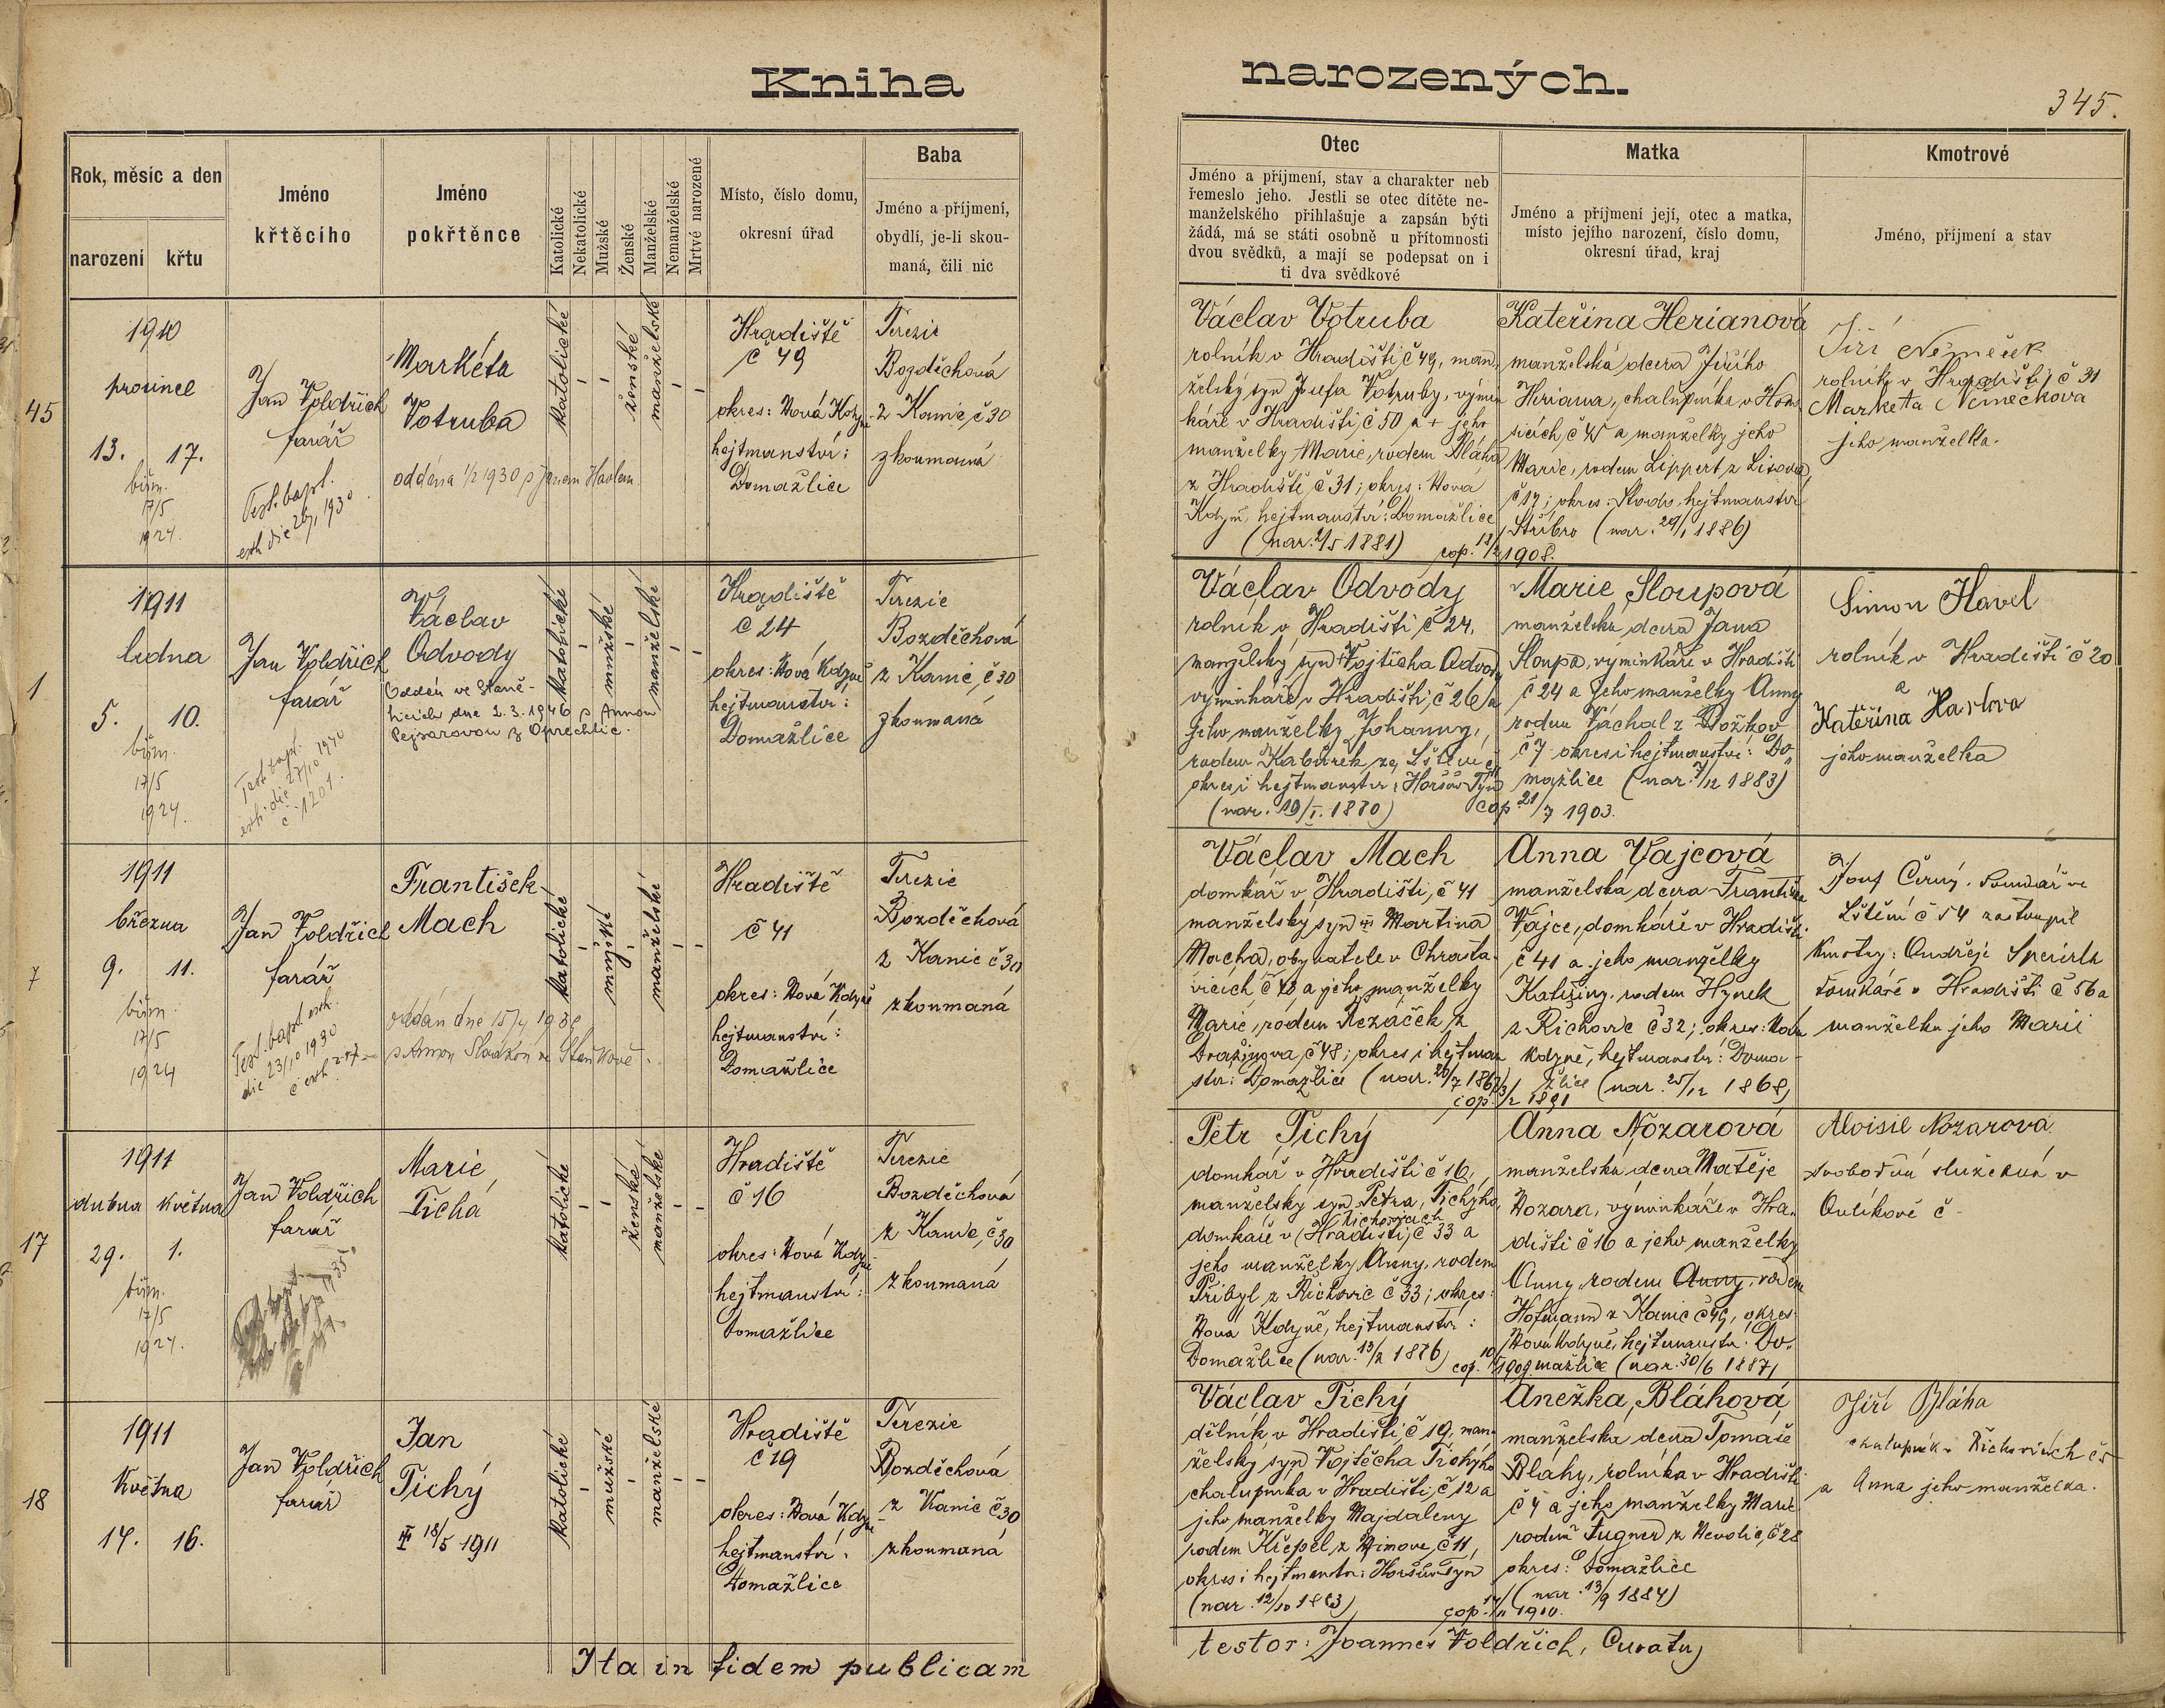 Kniha
narozených.
345.
Rok, měsíc a den
narození
křtu
Jméno
křtěcího
Jméno
pokřtěnce
Katolické
Nekatolické
Mužské
Ženské
Manželské
Nemanželské
Mrtvě narozené
Místo, číslo domu,
okresní úřad
Baba
Jméno a příjmení,
obydlí, je-li skou-
maná, čili nic
Otec
Jméno a příjmení, stav a charakter neb
řemeslo jeho. Jestli se otec dítěte ne-
manželského přihlašuje a zapsán býti
žádá, má se státi osobně u přítomnosti
dvou svědků, a mají se podepsat on i
ti dva svědkové
Matka
Jméno a příjmení její, otec a matka,
místo jejího narození, číslo domu,
okresní úřad, kraj
Kmotrové
Jméno, příjmení a stav
45
1910
prosince
13. 17.
biřm.
17/5
1924.
Jan Voldřich
farář
Test. bapt.
exh die 26/1 1930
Markéta
Votruba
oddána 1/2 1930 s Janem Havlem
katolické
ženské
manželské
Hradiště
č 49
okres: Nová Kdyně
hejtmanství:
Domažlice
Terezie
Bozděchová
z Kanic, č 30
zkoumaná
Václav Votruba
rolník v Hradišti č 49, man
želský syn Josefa Votruby, výmin
káře v Hradišti, č 50 a + jeho
manželky Marie, rodem Bláha
z Hradiště č 31; okres: Nová
Kdyň, hejtmanství: Domažlice
(nar. 2/5 1881) cop. 12/2 1908.
Kateřina Herianová
manželská dcera Jiřího
Heriana, chalupníka v Hono
sicích, č 45 a manželky jeho
Marie, rodem Lippert z Lisova
č 17; okres: Stodo, hejtmanství
Stříbro (nar. 29/1 1886)
Jiří Němeček
rolník v Hradišti, č 31
Marketa Nemečkova
jeho manželka.
1
1911
ledna
5. 10.
biřm.
17/5
1924.
Jan Voldřich
farář
Test. bapt.
exh. die 27/10 1940
č. 1201.
Václav
Odvody
Oddán ve Staně-
ticích dne 2.3.1946 s Annou
Pejsarovou z Oprechtic.
katolické
mužské
manželské
Hradiště
č 24
okres: Nová Kdyně
hejtmanství:
Domažlice
Terezie
Bozděchová
z Kanic, č 30
zkoumaná
Václav Odvody
rolník v Hradišti č 24,
manželský syn Vojtěcha Odvody
výminkáře v Hradišti, č 26 a
jeho manželky Johanny,
rodem Kabourek ze Lštění
okres i hejtmanství: Horšův Týn
(nar. 19/I. 1870) cop. 21/7 1903.
Marie Sloupová
manželská dcera Jana
Sloupa, výminkáře v Hradišti
č 24 a jeho manželky Anny
rodem Váchal z
č 7 okres i hejtmanství: Do
mažlice (nar. 7/12 1883)
Šimon Havel
rolník v Hradišti č 20
a
Kateřina Havlova
jeho manželka
7
1911
března
9. 11.
biřm.
17/5
1924
Jan Voldřich
farář
Test. bapt. exh.
die 23/10 1930
František
Mach
oddán dne
s Annou ve Staňkově.
katolické
mužské
manželské
Hradiště
č 41
okres: Nová Kdyně
hejtmanství:
Domažlice
Terezie
Bozděchová
z Kanic č 30
zkoumaná
Václav Mach
domkář v Hradišti, č 41
manželský syn Martina
Macha, obyvatele v Chrasta-
vicích č 48 a jeho manželky
Marie, rodem Rezáček, z
Dražinova, č 48; okres i hejtman
ství: Domažlice (nar. 20/7 186
cop. 3/2 1891
Anna Vajcová
manželská dcera Františka
Vajce, domkáře v Hradišti
č 41 a jeho manželky
Kateřiny, rodem Hynek
z Řichovic č 32; okres: Nová
Kdyně, hejtmanství: Doma-
žlice (nar. 25/12 1868)
Josef Černý, domkář ve
Lštění č 54 zastoupil
kmotry: Ondřeje Speirla
domkáře v Hradišti č 56 a
manželku jeho Marii
17
1911
dubna května
29. 1.
biřm.
17/5
1924.
Jan Voldřich
farář
Marie
Tichá
katolické
ženské
manželské
Hradiště
č 16
okres: Nová Kdyně
hejtmanství:
Domažlice
Terezie
Bozděchová
z Kanic, č 30
zkoumaná
Petr Tichý
domkář v Hradišti č 16,
manželský syn Petra Tichýho,
Řichovicích
domkáře v (Hradišti, č 33 a
jeho manželky Anny, rodem
Přibyl z Řichovic č 33; okres:
Nová Kdyně, hejtmanství:
Domažlice (nar. 13/2 1876) cop. 1909
Anna Nozarová
manželská dcera Matěje
Nozara, výminkáře v Hra-
dišti č 16 a jeho manželky
Anny rodem Anny, rodem
Hofmann z Kanic č 49, okres
Nová Kdyně, hejtmanství: Do-
mažlice (nar. 30/6 1887)
Aloisie Nozarova
svobodná služebná v
Oulikově č -
18
1911
Května
14. 16.
Jan Voldřich
farář
Jan
Tichý
18/5 1911
katolické
mužské
manželské
Hradiště
č 19
okres: Nová Kdyně
hejtmanství:
Domažlice
Terezie
Bozděchová
z Kanic č 30
zkoumaná
Václav Tichý
dělník v Hradišti, č 19, man-
želský syn Vojtěcha Tichýho
chalupníka v Hradišti, č 12 a
jeho manželky Majdaleny
rodem Křepel, z č 11,
okres i hejtmanství: Horšův Týn
(nar. 12/10 1883) cop. 14/11 1910.
Anežka Bláhová
manželská dcera Tomáše
Bláhy, rolníka v Hradišti
č 4 a jeho manželky Marie
rodem Fugner z Nevolic, č 28
okres: Domažlice
(nar. 13/9 1884)
Jiří Bláha
chalupník v Řichovicích č 5
a Anna jeho manželka.
Ita in fidem publicam
testor: Joannes Voldřich, Curatus